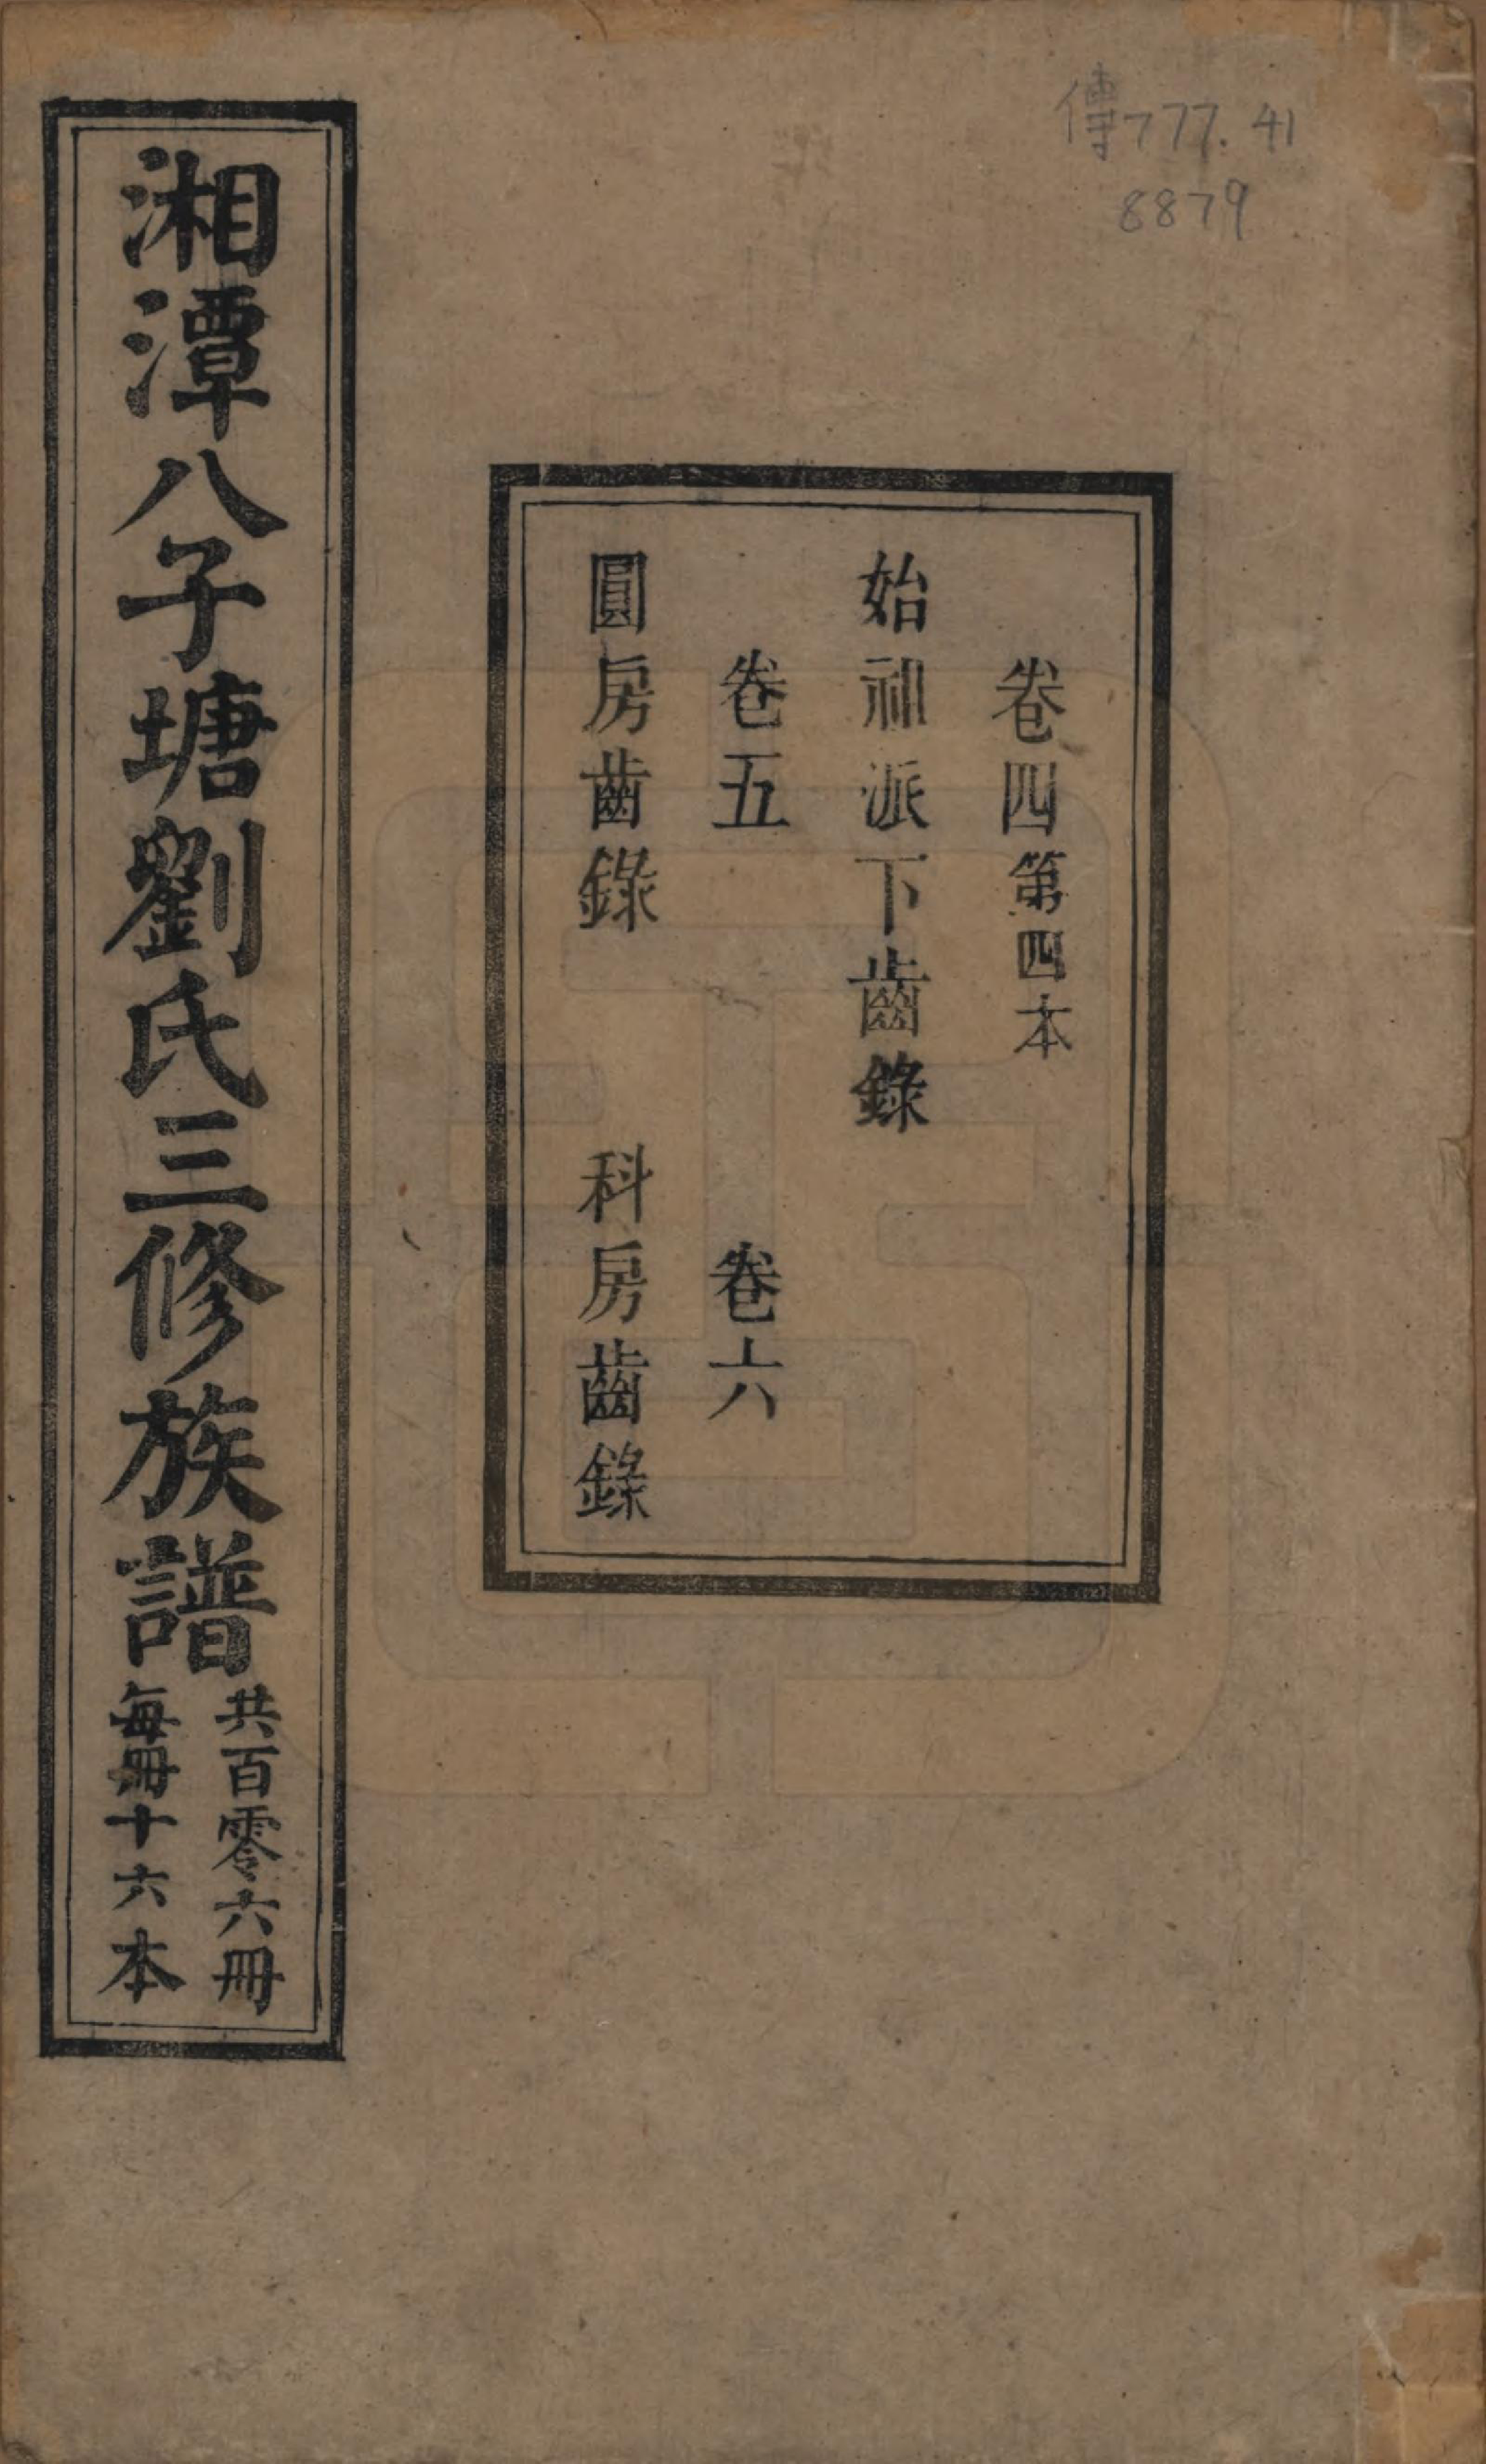 傳777.41
8879
卷四第四本
始祖派下齒錄
卷五 卷六
圓房齒錄 科房齒錄
湘潭八子塘劉氏三修族譜
共百零六冊
每冊十六本